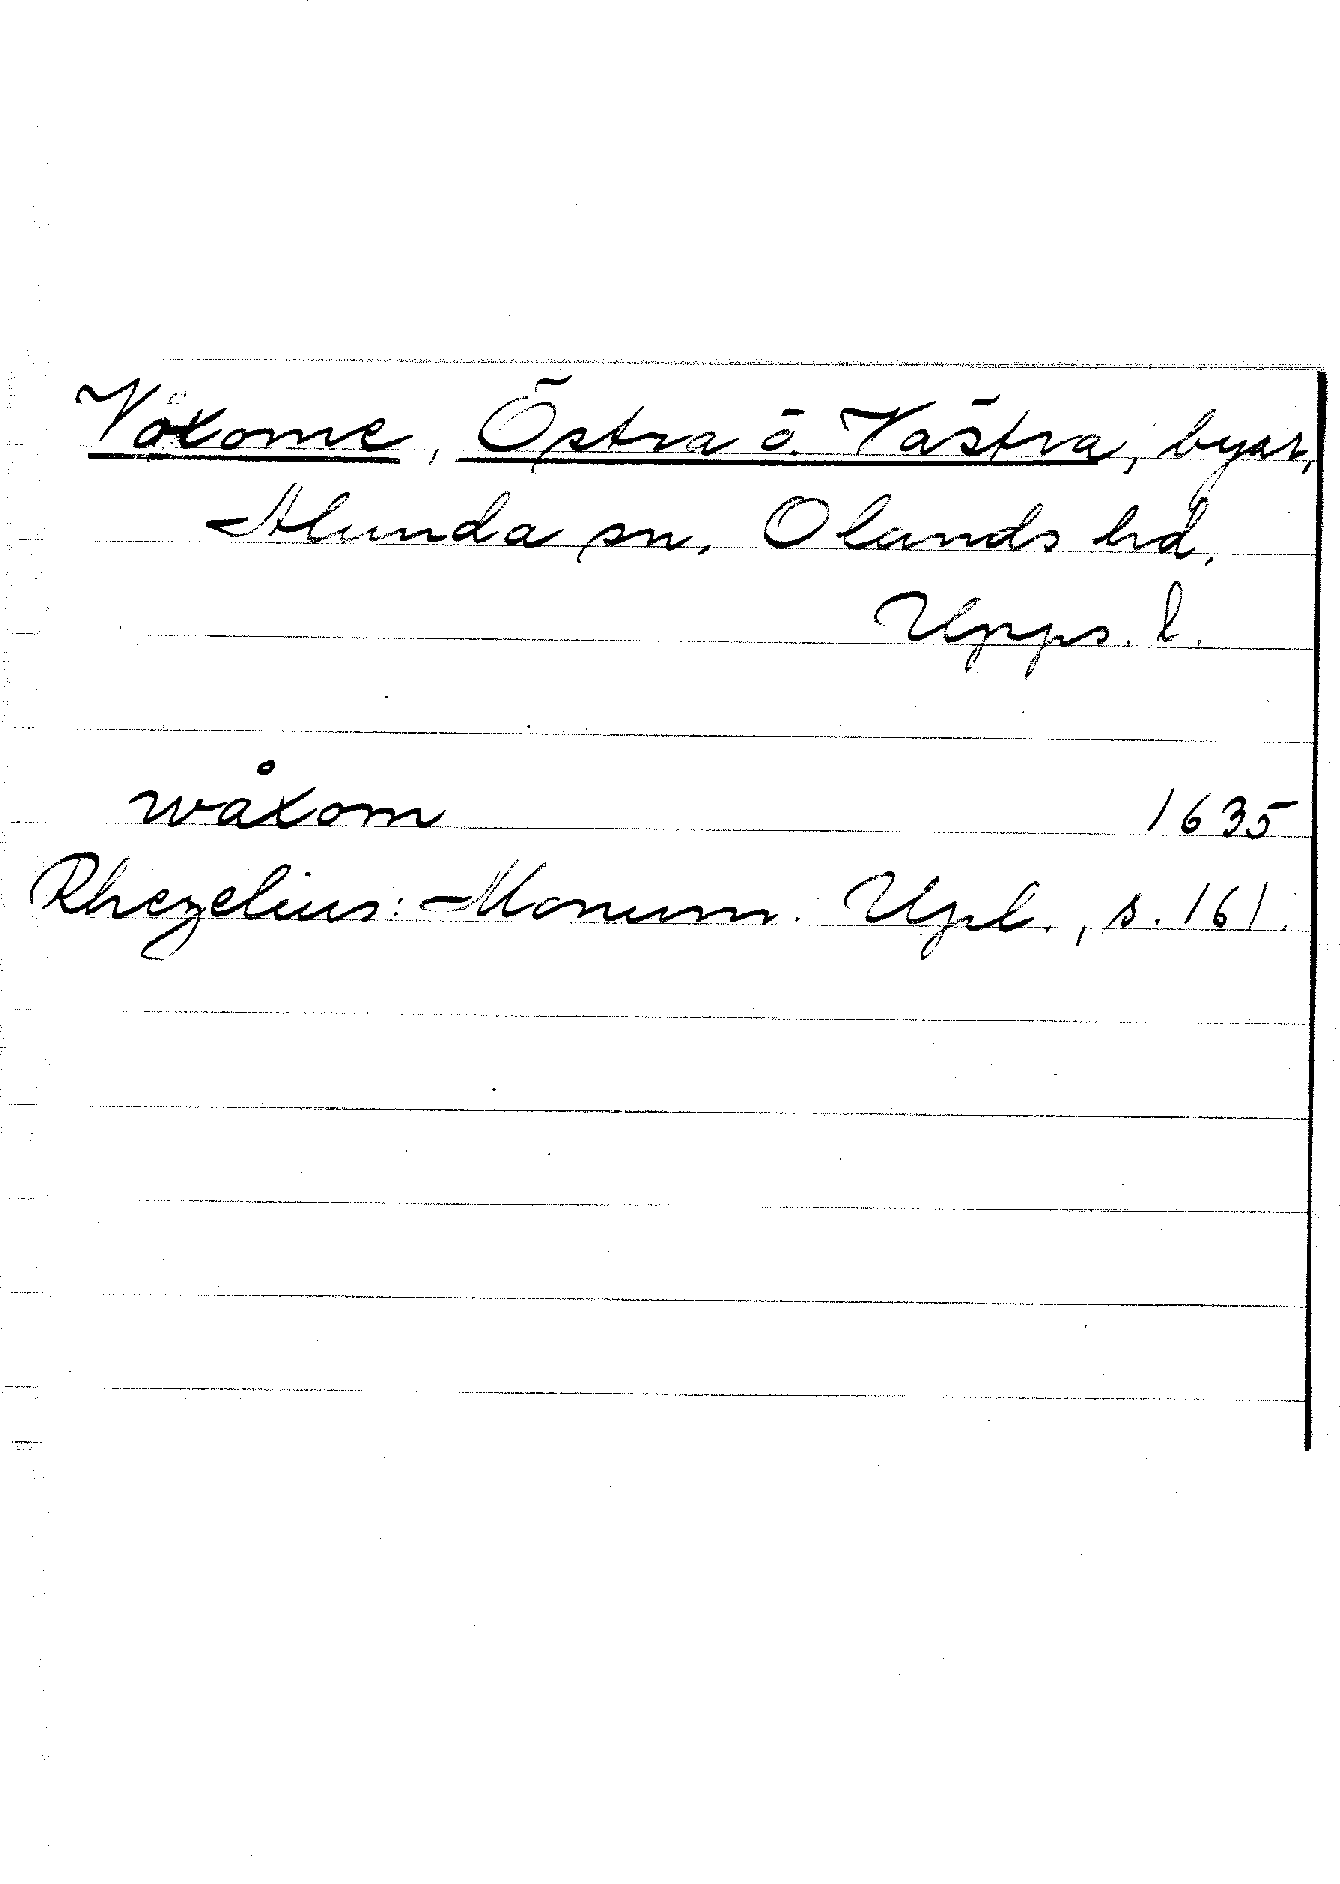 Våxome, Östra o. Västra, byar,
Alunda sn. Olands hd.
Upps. l.
wåxom 1635
Rhezelius: Monum. Upl., s. 161.